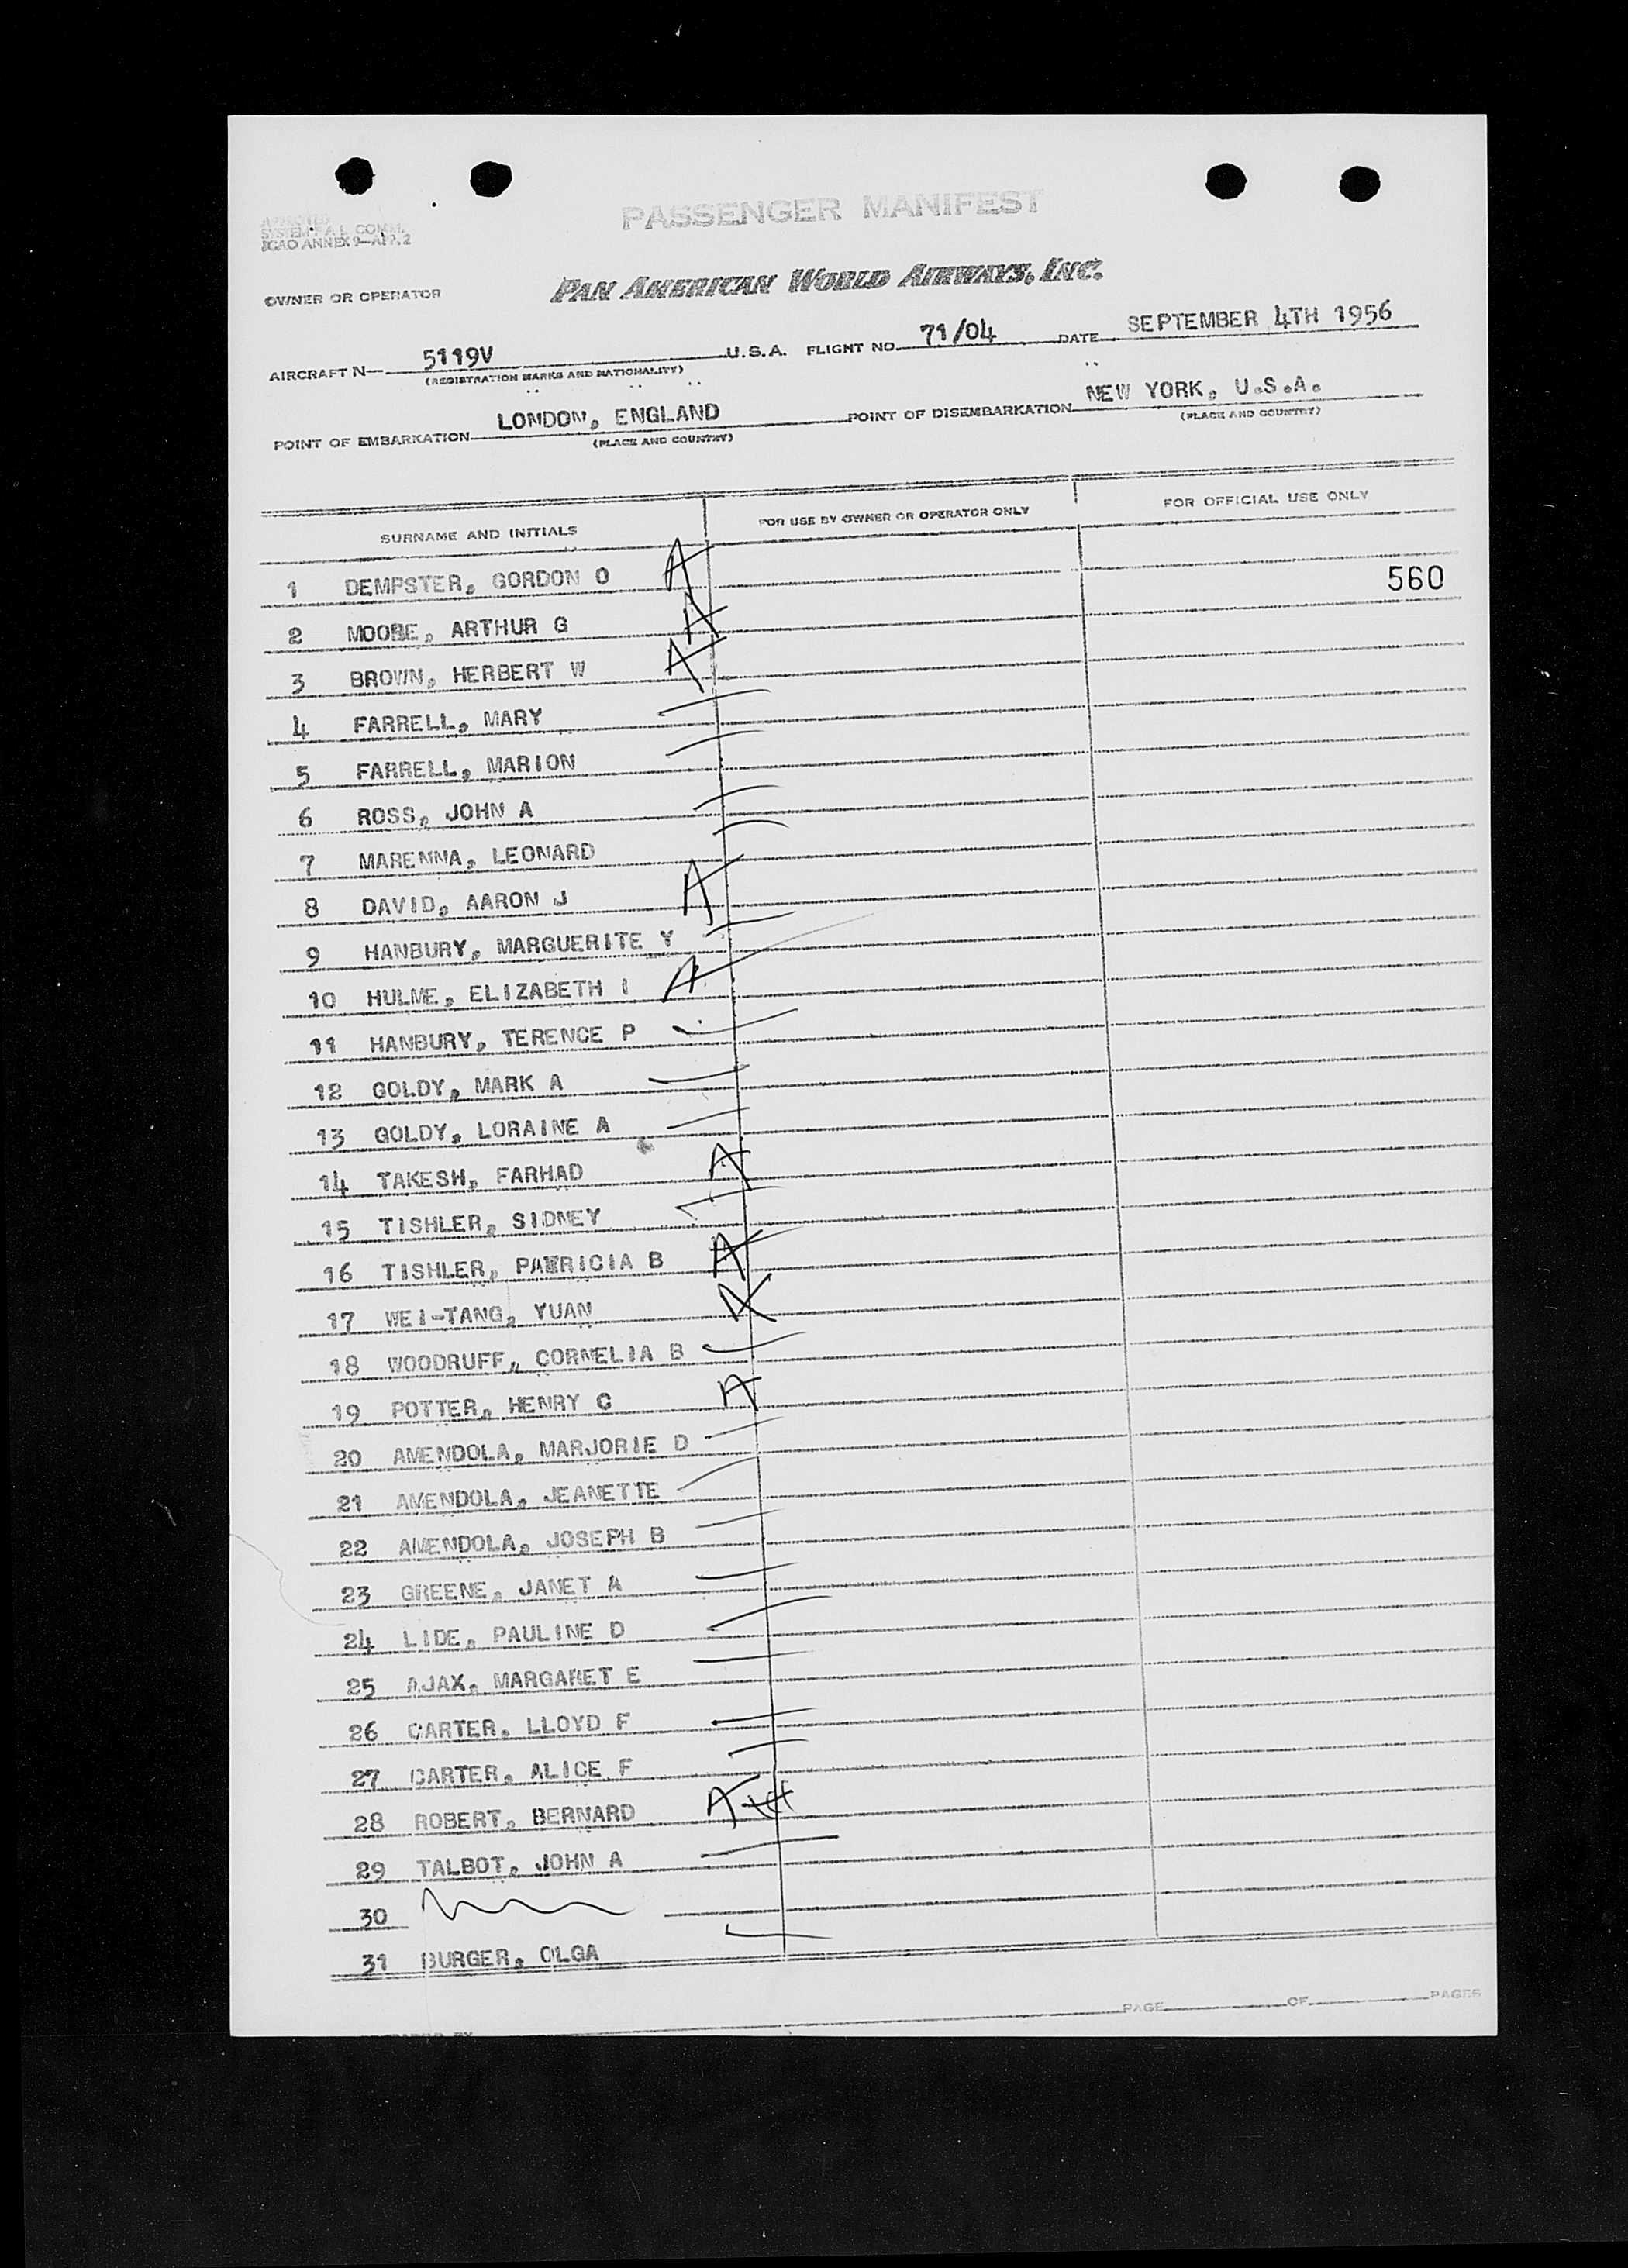 PASSENGER MANIFEST
APPROVED
SYSTEM F A L COMM.
ICAO ANNEX 9—APP. 2
OWNER OR OPERATOR PAN AMERICAN WORLD AIRWAYS, INC.
AIRCRAFT N— 5119V U.S.A. FLIGHT NO. 71/04 DATE SEPTEMBER 4TH 1956
(REGISTRATION MARKS AND NATIONALITY)
POINT OF EMBARKATION LONDON, ENGLAND POINT OF DISEMBARKATION NEW YORK, U.S.A.
(PLACE AND COUNTRY) (PLACE AND COUNTRY)
SURNAME AND INITIALS FOR USE BY OWNER OR OPERATOR ONLY FOR OFFICIAL USE ONLY
1 DEMPSTER, GORDON O A
560
2 MOORE, ARTHUR G A
3 BROWN, HERBERT W A
4 FARRELL, MARY
5 FARRELL, MARION
6 ROSS, JOHN A
7 MARENNA, LEONARD
8 DAVID, AARON J A
9 HANBURY, MARGUERITE Y
10 HULME, ELIZABETH I A
11 HANBURY, TERENCE P
12 GOLDY, MARK A
13 GOLDY, LORAINE A
14 TAKESH, FARHAD A
15 TISHLER, SIDNEY
16 TISHLER, PATRICIA B A
17 WEI-TANG, YUAN A
18 WOODRUFF, CORNELIA B
19 POTTER, HENRY C A
20 AMENDOLA, MARJORIE D
21 AMENDOLA, JEANETTE
22 AMENDOLA, JOSEPH B
23 GREENE, JANET A
24 LIDE, PAULINE D
25 AJAX, MARGARET E
26 CARTER, LLOYD F
27 CARTER, ALICE F
28 ROBERT, BERNARD A
29 TALBOT, JOHN A
30
31 BURGER, OLGA
PAGE OF PAGES